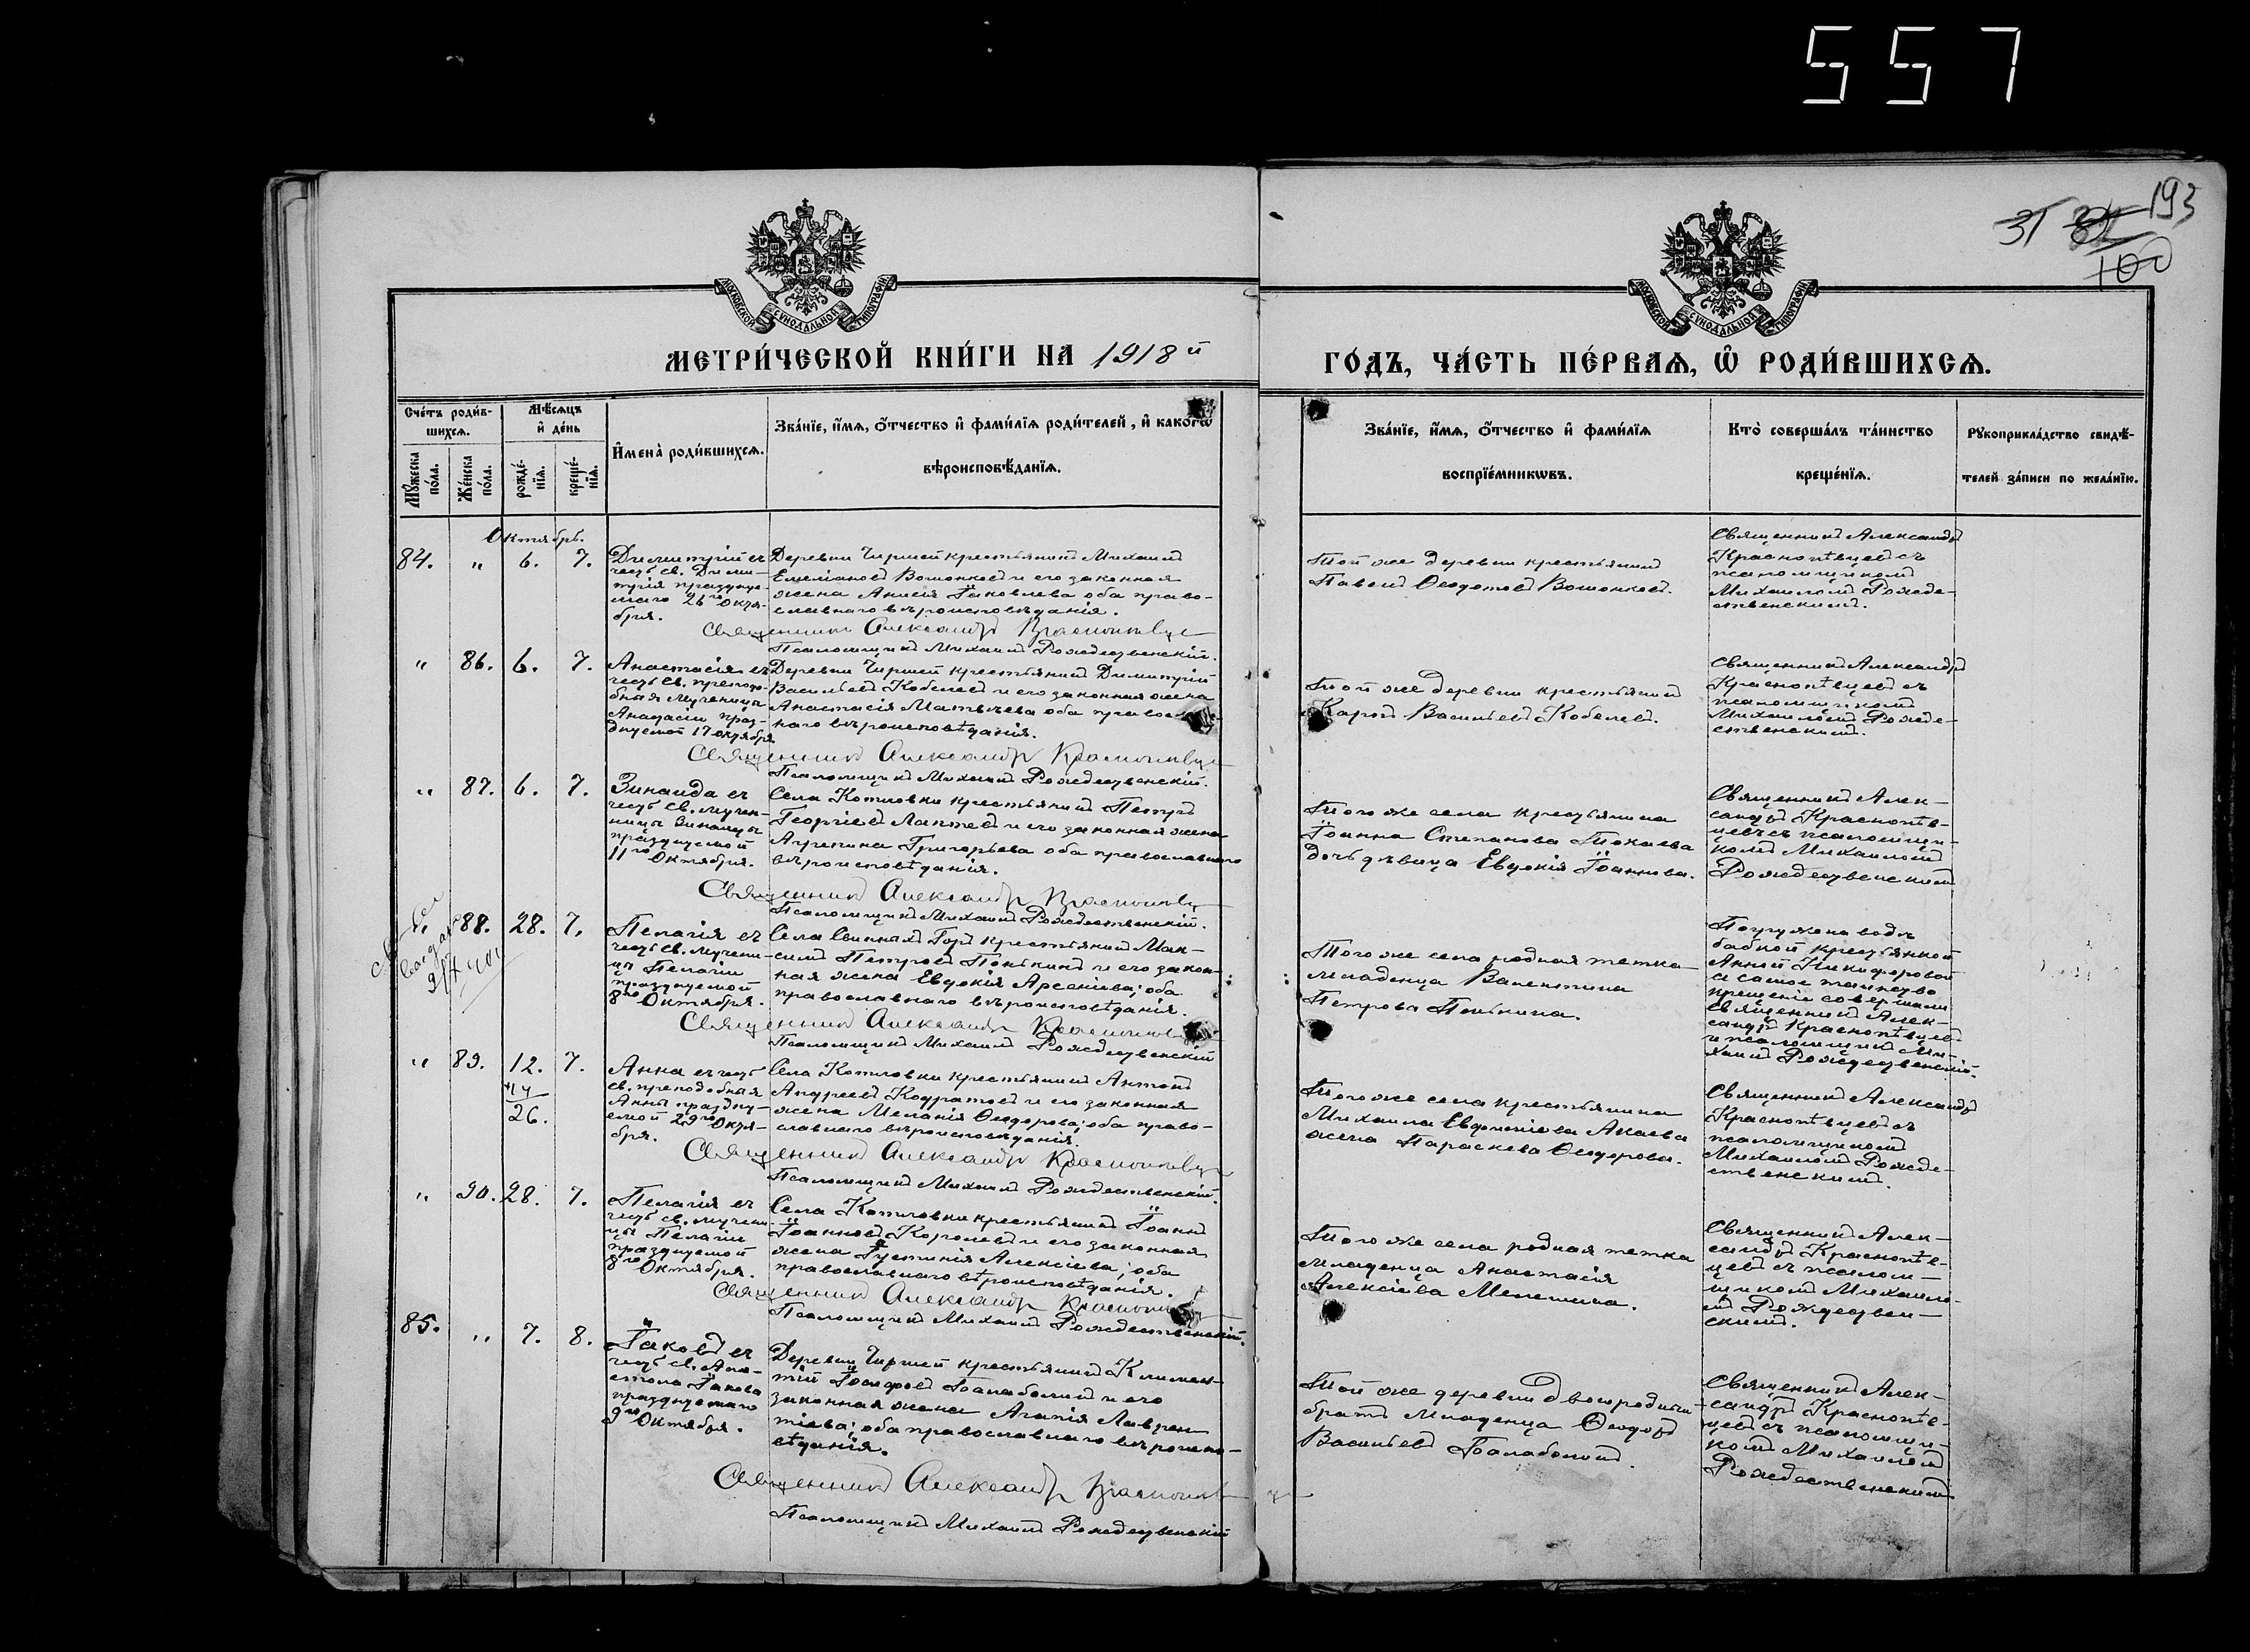 557
193
31 82
100
МОСКОВСКОЙ СѴНОДАЛЬНОЙ ТИПОГРАФІИ
МОСКОВСКОЙ СѴНОДАЛЬНОЙ ТИПОГРАФІИ
МЕТРИ́ЧЕСКОЙ КНИ́ГИ НА 1918й
ГО́ДЪ, ЧА́СТЬ ПЕ́РВАѦ, Ѽ РОДИ́ВШИХСѦ.
Сче́тъ роди́в-
шихсѧ.
Мꙋ́жеска по́ла.
Же́нска по́ла.
Мѣ́сѧцъ
и҆ де́нь
рожде́-
нїѧ.
креще́-
нїѧ.
И҆мена̀ роди́вшихсѧ.
Зва́нїе, и҆́мѧ, ѻ҆́тчество и҆ фами́лїѧ роди́телей, и҆ како́гѡ
вѣроисповѣ́данїѧ.
Зва́нїе, и҆́мѧ, ѻ҆́тчество и҆ фами́лїѧ
воспрїе́мникѡвъ.
Кто̀ соверша́лъ та́инство
креще́нїѧ.
Рꙋкоприкла́дство свидѣ́-
телей за́писи по жела́нїю.
Октябрь.
84. " 6. 7.
Димитрій въ
честь св. Дими-
трія праздну-
емаго 26го Октя-
бря.
Деревни Чиршей крестьянинъ Михаилъ
Емеліановъ Вошонковъ и его законная
жена Анисія Іаковлева оба право-
славнаго вѣроисповѣданія.
Священникъ Александръ Краснопѣвцевъ
Псаломщикъ Михаилъ Рождественскій.
Той же деревни крестьянинъ
Павелъ Ѳеодотовъ Вошонковъ.
Священникъ Александръ
Краснопѣвцевъ съ
псаломщикомъ
Михаиломъ Рожде-
ственскимъ.
" 86. 6. 7.
Анастасія въ
честь св. преподо-
бныя мученицы
Анастасіи праз-
днуемой 17 октября
Деревни Чиршей крестьянинъ Димитрій
Васильевъ Кобелевъ и его законная жена
Анастасія Матвѣева оба правосла-
наго вѣроисповѣданія.
Священникъ Александръ Краснопѣвцевъ
Псаломщикъ Михаилъ Рождественскій.
Той же деревни крестьянинъ
Карпъ Васильевъ Кобелевъ.
Священникъ Александръ
Краснопѣвцевъ съ
псаломщикомъ
Михаиломъ Рожде-
ственскимъ.
" 87. 6. 7.
Зинаида въ
честь св. мучен-
ницы Зинаиды
празднуемой
11го Октября.
Села Котловки крестьянинъ Петръ
Георгіевъ Лаптевъ и его законная жена
Агрепина Григорьева оба православнаго
вѣроисповѣданія.
Священникъ Александръ Краснопѣвцевъ
Псаломщикъ Михаилъ Рождественскій.
Того же села крестьянина
Іоанна Степанова Токаева
дочь дѣвица Евдокія Іоаннова.
Священникъ Алек-
сандръ Краснопѣв-
цевъ съ псаломщи-
комъ Михаиломъ
Рождественскимъ
" 88. 28. 7.
Пелагія въ
честь св. мучени-
цы Пелагіи
празднуемой
8го Октября.
Села Свиныхъ Горъ крестьянинъ Мак-
симъ Петровъ Понькинъ и его закон-
ная жена Евдокія Арсеніева; оба
православнаго вѣроисповѣданія.
Священникъ Александръ Краснопѣвцевъ
Псаломщикъ Михаилъ Рождественскій
Того же села родная тетка
младенца Валентина
Петрова Понькина.
Погружена въ воду
бабкой крестьянкой
Анной Никифоровой
а самое таинство
крещенія совершали
Священникъ Алек-
сандръ Краснопѣвцевъ
и псаломщикъ Ми-
хаилъ Рождественскій.
" 89. 12. 7.
14
26.
Анна въ честь
св. преподобныя
Анны праздну-
емой 29го Октя-
бря.
Села Котловки крестьянинъ Антонъ
Андреевъ Кодратовъ и его законная
жена Меланія Ѳеодорова; оба право-
славнаго вѣроисповѣданія.
Священникъ Александръ Краснопѣвцевъ
Псаломщикъ Михаилъ Рождественскій.
Того же села крестьянина
Михаила Евфиміева Акаева
жена Параскева Ѳеодорова.
Священникъ Александръ
Краснопѣвцевъ съ
псаломщикомъ
Михаиломъ Рожде-
ственскимъ.
" 90. 28. 7.
Пелагія въ
честь св. мучени-
цы Пелагіи
празднуемой
8го Октября.
Села Котловки крестьянинъ Іоаннъ
Іоанновъ Королевъ и его законная
жена Іустинія Алексіева; оба
православнаго вѣроисповѣданія.
Священникъ Александръ Краснопѣвцевъ
Псаломщикъ Михаилъ Рождественскій.
Того же села родная тетка
младенца Анастасія
Алексіева Мелешина.
Священникъ Алек-
сандръ Краснопѣв-
цевъ съ псалом-
щикомъ Михаило-
мъ Рождествен-
скимъ.
85. " 7. 8.
Іаковъ въ
честь св. Апо-
стола Іакова
празднуемаго
9го Октября.
Деревни Чиршей крестьянинъ Климен-
тій Іосифовъ Балаболинъ и его
законная жена Агапія Лаврен-
тіева; оба православнаго вѣроиспо-
вѣданія.
Священникъ Александръ Краснопѣвцевъ
Псаломщикъ Михаилъ Рождественскій
Той же деревни двоюродный
братъ младенца Ѳеодоръ
Васильевъ Балаболинъ.
Священникъ Алек-
сандръ Краснопѣв-
цевъ съ псаломщи-
комъ Михаиломъ
Рождественскимъ